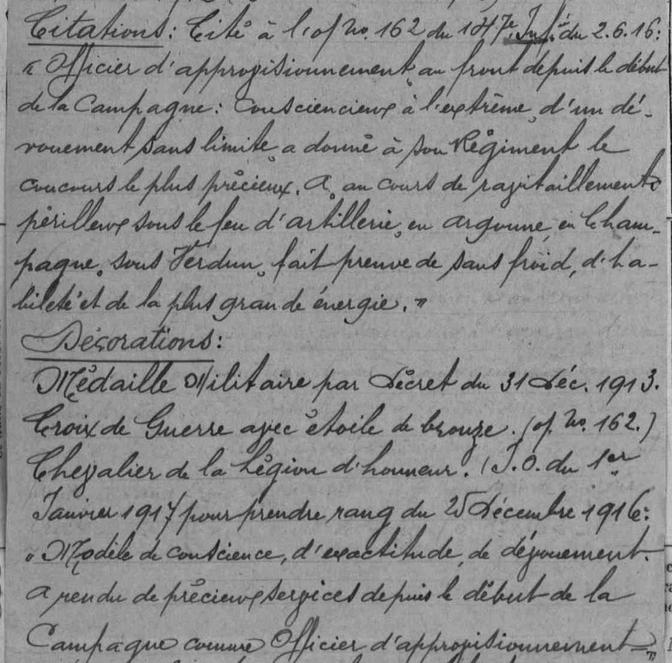 Citations: Cité à l'of No. 162 du 147e Inf. du 2.6.16:
« Officier d'approvisionnement au front depuis le début
de la Campagne: Consciencieux à l'extrême, d'un dé-
vouement sans limite a donné à son Régiment le
concours le plus précieux. A, au cours de ravitaillements
périlleux sous le feu d'artillerie, en Argonne, en Cham-
pagne, sous Verdun, fait preuve de sang froid, d'ha-
bileté et de la plus grande énergie. »
Décorations:
Médaille Militaire par Décret du 31 Déc. 1913.
Croix de Guerre avec étoile de bronze. (of. No. 162.)
Chevalier de la Légion d'honneur. (J.O. du 1er
Janvier 1917 pour prendre rang du 25 Décembre 1916:
« Modèle de conscience, d'exactitude, de dévouement.
A rendu de précieux services depuis le début de la
Campagne comme Officier d'approvisionnement »